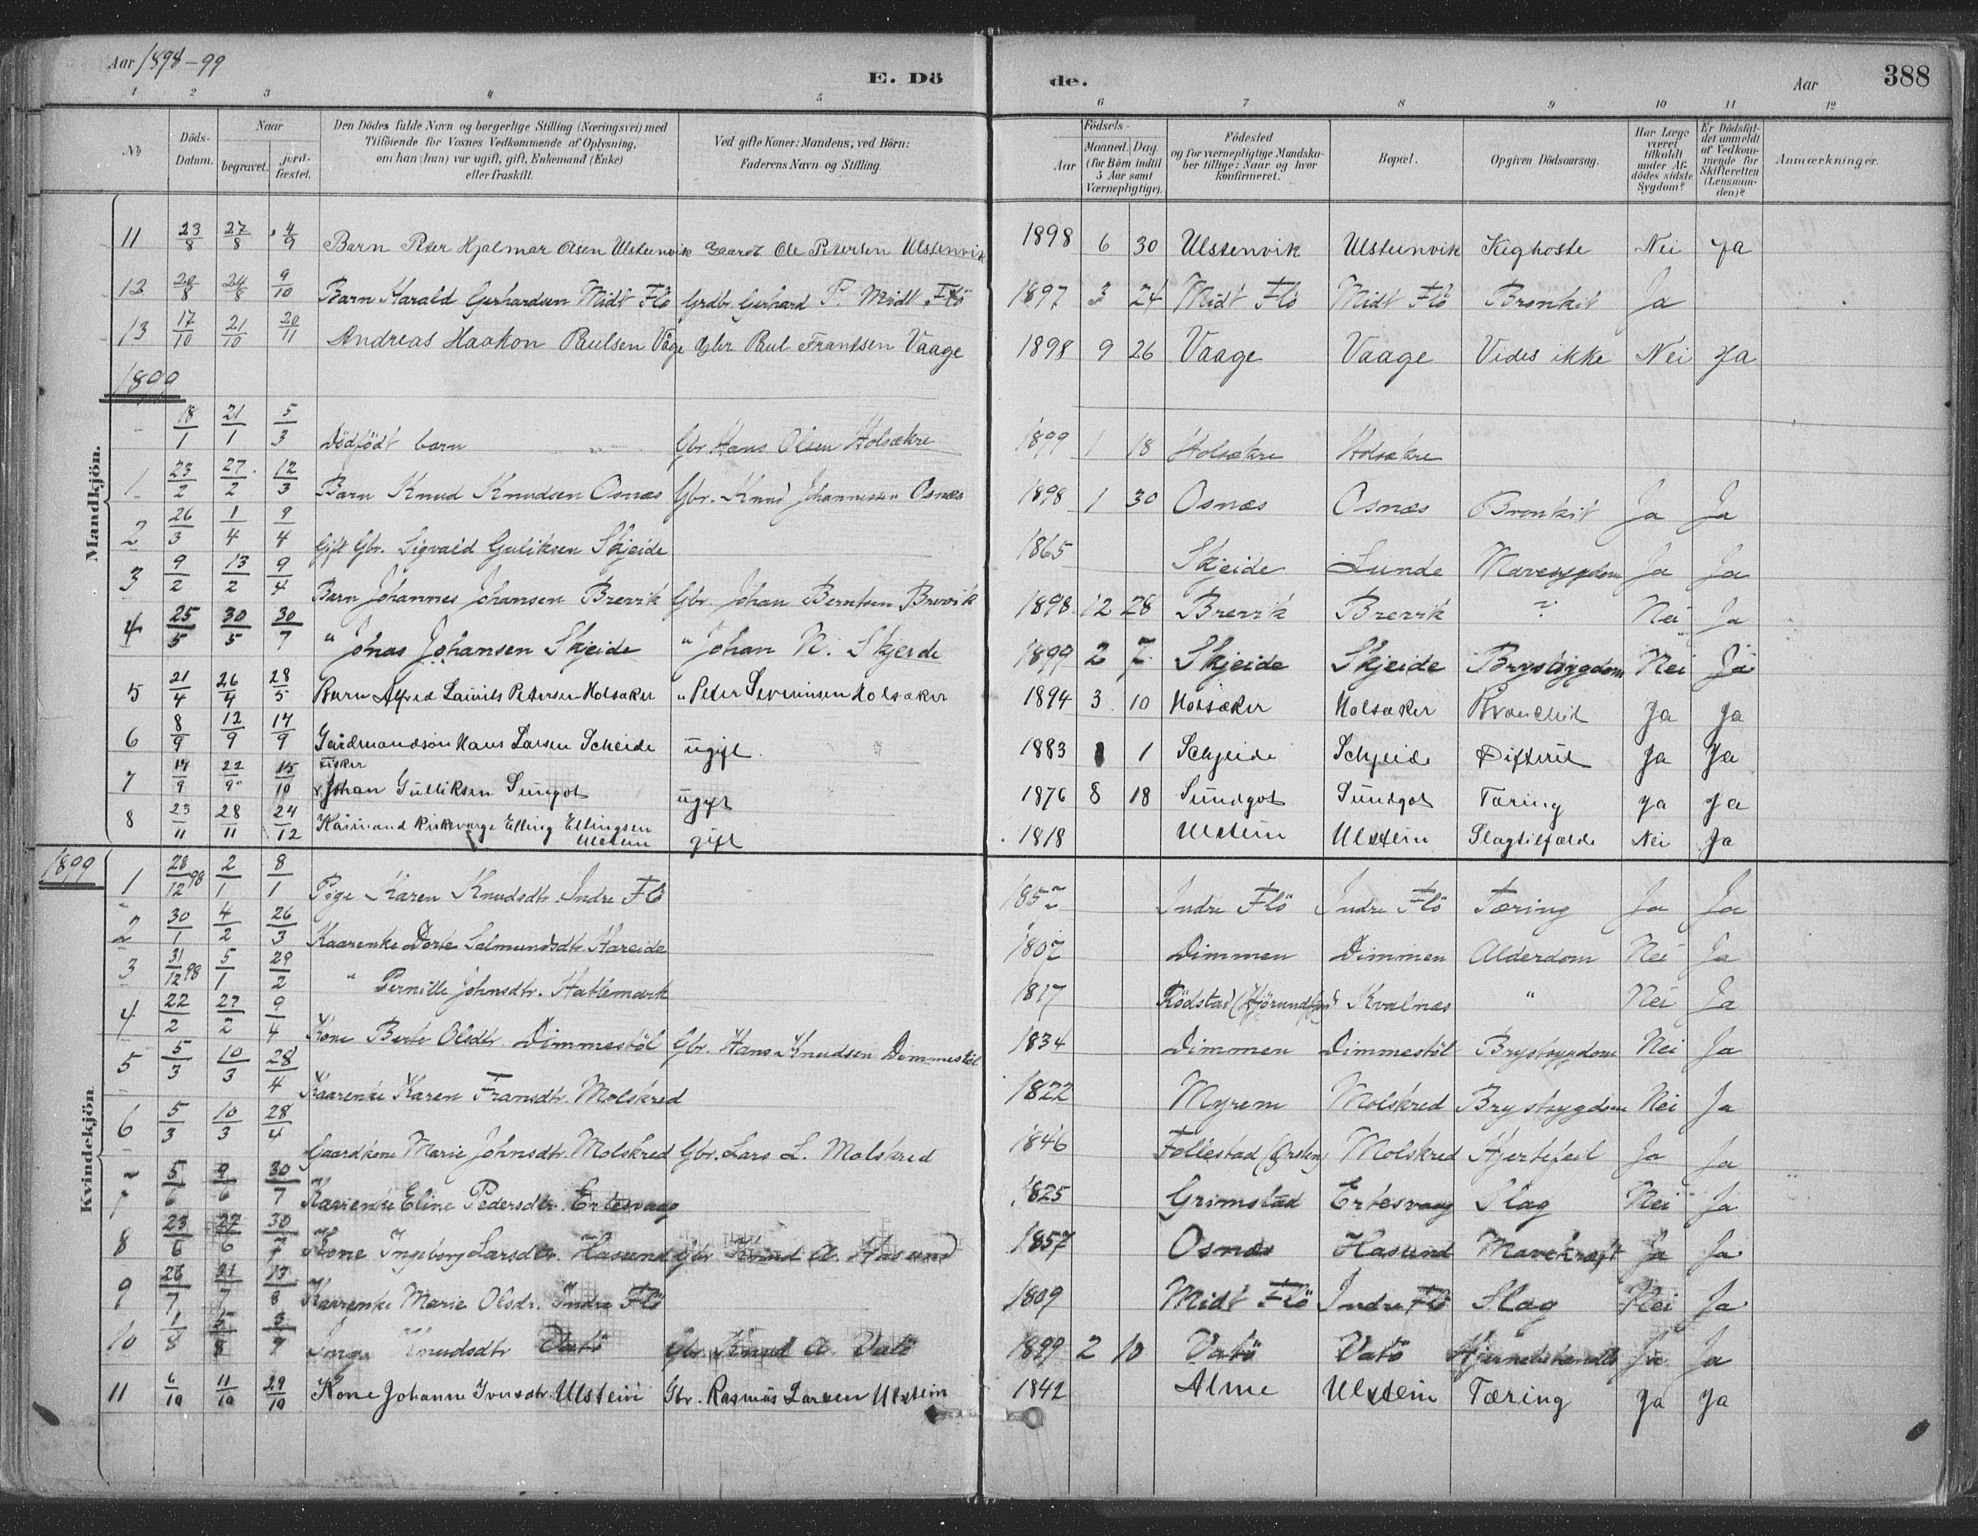 Aar 1898-99
E. Dö
de.
Aar
388
1 2 3 4 5 6 7 8 9 10 11 12
No
Döds-Datum.
Naar
begravet.
jord-fæstet.
Den Dödes fulde Navn og borgerlige Stilling (Næringsvei) med
Tilföiende for Voxnes Vedkommende af Oplysning,
om han (hun) var ugift, gift, Enkemand (Enke)
eller fraskilt.
Ved gifte Koner: Mandens, ved Börn:
Faderens Navn og Stilling.
Födsels-
Aar
Maaned. Dag.
(for Börn indtil
5 Aar samt
Værnepligtige).
Födested
og for værnepligtige Mandska-
ber tillige: Naar og hvor
konfirmeret.
Bopæl.
Opgiven Dödsaarsag.
Har Læge
været
tilkaldt
under Af-
dödes sidste
Sygdom?
Er Dödsfal-
det anmeldt
af Vedkom-
mende for
Skifteretten
(Lensman-
den)?
Anmærkninger.
Mandkjön.
11 23/8 27/8 4/9 Barn Peter Hjalmar Olsen Ulsteinvik Gaardt Ole Petersen Ulstenvik 1898 6 30 Ulstenvik Ulsteinvik Kighoste Nei Ja
12 20/8 24/8 9/10 Barn Harald Gerhardsen Midt Flö Grdbr. Gerhard P. Midt Flö 1897 3 24 Midt Flö Midt Flö Bronkit Ja
13 17/10 21/10 20/11 Andreas Haakon Paulsen Våge Gbr Paul Frantsen Vaage 1898 9 26 Vaage Vaage Vides ikke Nei Ja
1899
18/1 21/1 5/3 Dödfödt barn Gbr. Hans Olsen Holsækre 1899 1 18 Holsækre Holsækre
1 23/2 27/2 12/3 Barn Knud Knudsen Osnæs Gbr. Knud Johannessen Osnæs 1898 1 30 Osnæs Osnæs Bronkit Ja Ja
2 26/3 1/4 9/4 Gift Gbr. Sigvald Guliksen Skjeide 1865 Skjeide Lunde Mavesygdom Ja Ja
3 9/2 13/2 9/4 Barn Johannes Johansen Brevik Gbr. Johan Berntsen Brevik 1898 12 28 Brevik Brevik ? Nei Ja
4 25/5 30/5 30/7 " Jonas Johansen Skjeide " Johan N. Skjeide 1899 2 7 Skjeide Skjeide Brystsygdom Nei Ja
5 21/4 26/4 28/5 Barn Alfred Laurits Petersen Holsæker " Peter Severinsen Holsæker 1894 3 10 Holsæker Holsæker Bronchit Ja Ja
6 8/9 12/9 17/9 Gårdmandsön Hans Larsen Scheide ugift 1883 1 Schjeide Schjeide Difterit Ja Ja
7 19/9 22/9 15/10 Fisker Johan Gulliksen Sundgot ugift 1876 8 18 Sundgot Sundgot Tæring Ja Ja
8 23/11 28/11 24/12 Kårmand Kirkeværge Elling Ellingsen Ulstein gift 1818 Ulstein Ulstein Slagtilfælde Nei Ja
1899
Kvindekjön
1 28/12 98 2/1 8/1 Pige Karen Knudsdtr. Indre Flö 1857 Indre Flö Indre Flö Tæring Ja Ja
2 30/1 4/2 26/3 Kaarenke Dorte Salmundsdtr. Hareide 1807 Dimmen Dimmen Alderdom Nei Ja
3 31/12 98 5/1 29/2 " Pernille Johnsdtr. Hatlemark 1817 Rödstad (Hjörundfjord) Kvalnæs " Nei Ja
4 22/2 27/2 9/4 Kone Berte Olsdtr Dimmestöl Gbr. Hans Knudsen Dimmestöl 1834 Dimmen Dimmestöl Brystsygdom Nei Ja
5 5/3 10/3 28/4 Kaarenke Karen Fransdtr. Molskred 1822 Myrem Molskred Brystsygdom Nei Ja
6 5/3 10/3 28/4 Gaardkone Marie Johnsdtr. Molskred Gbr. Lars L. Molskred 1846 Follestad (Örsten) Molskred Hjertefeil Ja Ja
7 5/6 9/6 30/7 Kaarenke Eline Pedersdtr. Ertesvaag 1825 Grimstad Ertesvaag Slag Nei Ja
8 23/6 27/6 30/7 Kone Ingeborg Larsdtr. Hasund Gbr. Knud A. Hasund 1857 Osnæs Hasund Mavekræft Ja Ja
9 26/7 31/7 13/8 Kaarenke Marie Olsdr. Indre Flö 1809 Midt Flö Indre Flö Slag Nei Ja
10 1/8 5/8 3/9 Knudsdtr Vatö Gbr. Knud A. Vatö 1899 2 10 Vatö Vatö Ja Ja
11 6/10 11/10 29/10 Kone Johanne Iversdtr. Ulstein Gbr. Rasmus Larsen Ulstein 1842 Alme Ulstein Tæring Ja Ja